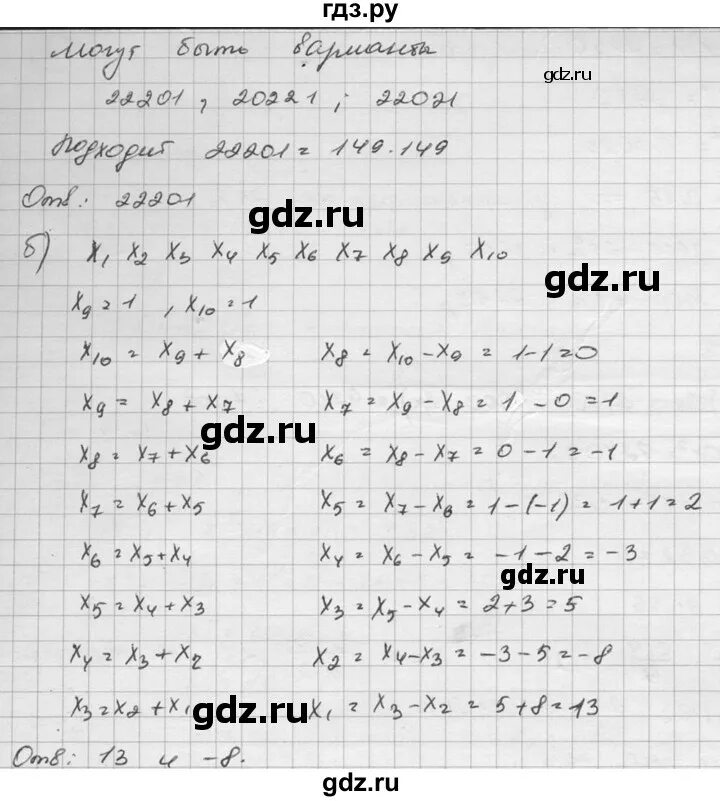 гдз.ру
могут быть варианты
gdz.ru
22201, 20221; 22021
подходит 22201 = 149.149
Отв: 22201
gdz.ru
б) x₁ x₂ x₃ x₄ x₅ x₆ x₇ x₈ x₉ x₁₀
gdz.ru
x₉ = 1 , x₁₀ = 1
x₁₀ = x₉ + x₈ x₈ = x₁₀ - x₉ = 1-1=0
x₉ = x₈ + x₇ x₇ = x₉ - x₈ = 1 - 0 = 1
gdz.ru
x₈ = x₇ + x₆ x₆ = x₈ - x₇ = 0 - 1 = -1
x₇ = x₆ + x₅ x₅ = x₇ - x₆ = 1-(-1) = 1+1=2
x₆ = x₅ + x₄ x₄ = x₆ - x₅ = -1-2 = -3
gdz.ru
x₅ = x₄ + x₃ x₃ = x₅ - x₄ = 2+3=5
x₄ = x₃ + x₂ x₂ = x₄ - x₃ = -3-5=-8
x₃ = x₂ + x₁ x₁ = x₃ - x₂ = 5+8=13
gdz.ru
Отв: 13 и -8.
gdz.ru